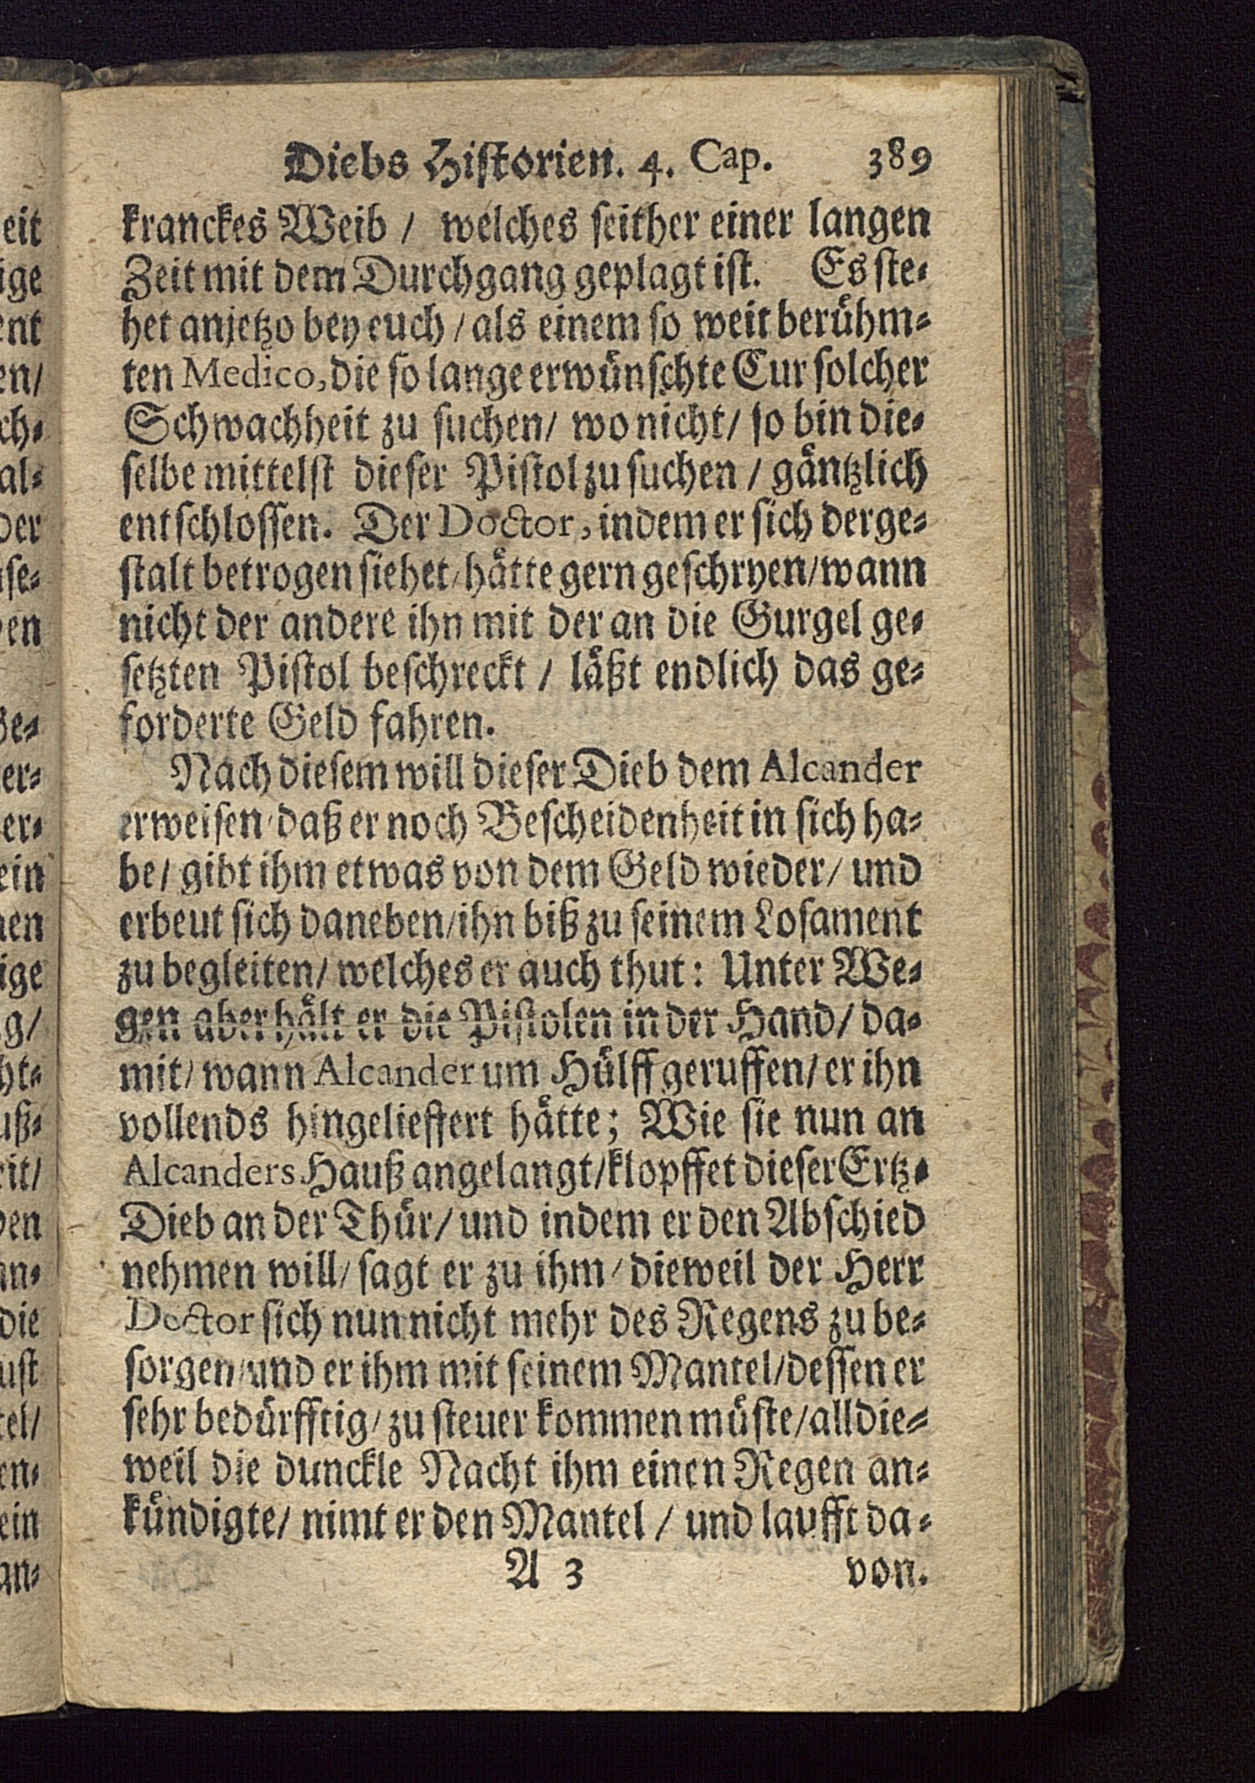 Diebs Historien. 4. Cap. 389
kranckes Weib / welches seither einer langen
Zeit mit dem Durchgang geplagt ist. Es ste-
het anjetzo bey euch / als einem so weit berühm-
ten Medico, die so lange erwünschte Cur solcher
Schwachheit zu suchen / wo nicht / so bin die-
selbe mittelst dieser Pistol zu suchen / gäntzlich
entschlossen. Der Doctor, indem er sich derge-
stalt betrogen siehet / hätte gern geschryen / wann
nicht der andere ihn mit der an die Gurgel ge-
setzten Pistol beschreckt / läßt endlich das ge-
forderte Geld fahren.
Nach diesem will dieser Dieb dem Alcander
erweisen / daß er noch Bescheidenheit in sich ha-
be / gibt ihm etwas von dem Geld wieder / und
erbeut sich daneben / ihn biß zu seinem Losament
zu begleiten / welches er auch thut: Unter We-
gen aber hält er die Pistolen in der Hand / da-
mit / wann Alcander um Hülff geruffen / er ihn
vollends hingelieffert hätte; Wie sie nun an
Alcanders Hauß angelangt / klopffet dieser Ertz-
Dieb an der Thür / und indem er den Abschied
nehmen will / sagt er zu ihm / dieweil der Herr
Doctor sich nun nicht mehr des Regens zu be-
sorgen / und er ihm mit seinem Mantel / dessen er
sehr bedürfftig / zu steuer kommen müste / alldie-
weil die dunckle Nacht ihm einen Regen an-
kündigte / nimt er den Mantel / und laufft da-
A 3 von.